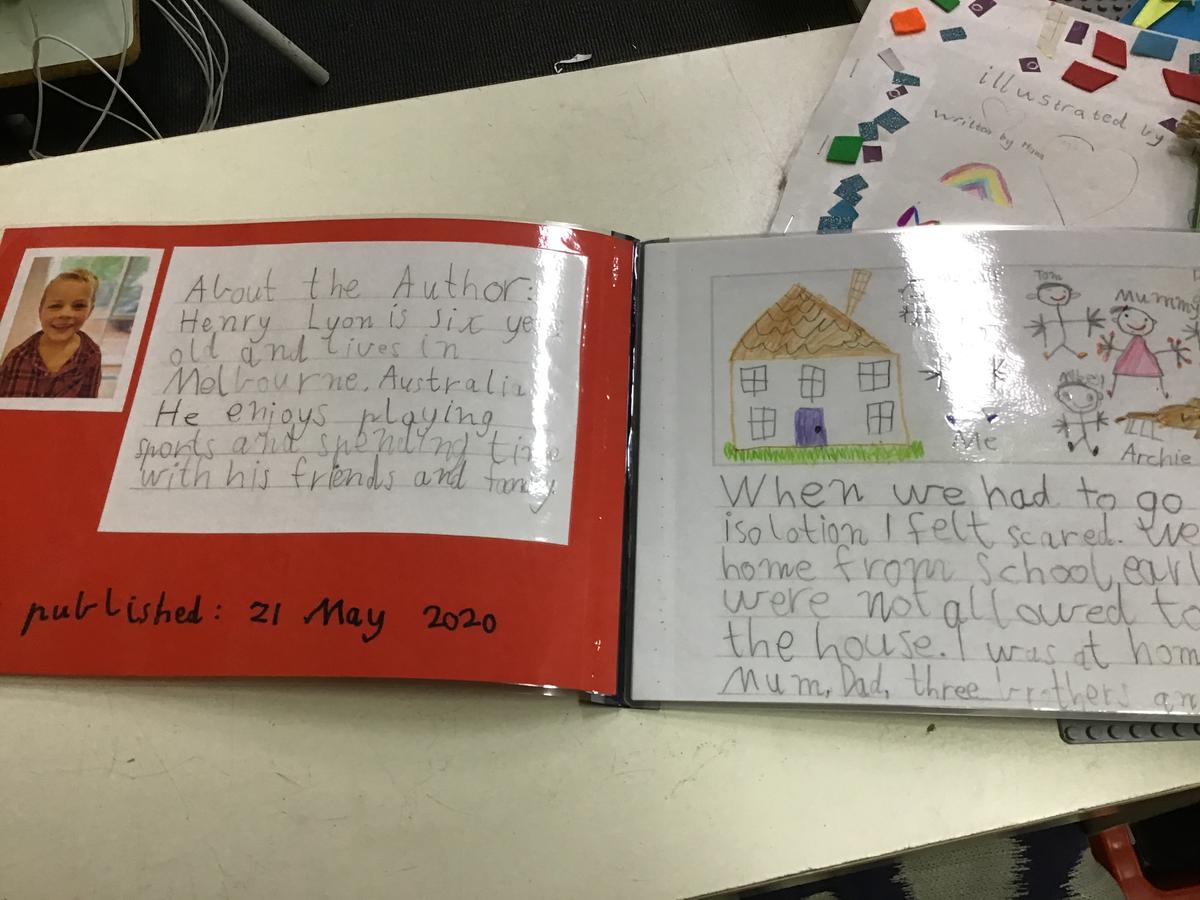 illustrated by
written by Mama
About the Author:
Henry Lyon is six
old and lives in
Melbourne. Australia
He enjoys playing
sports and spending time
with his friends and
published: 21 May 2020
Tom
Mummy
Mikey
Me
Archie
When we had to go
isolotion I felt scared. We
home from school
were not allowed to
the house. I was at
Mum, Dad, three brothers